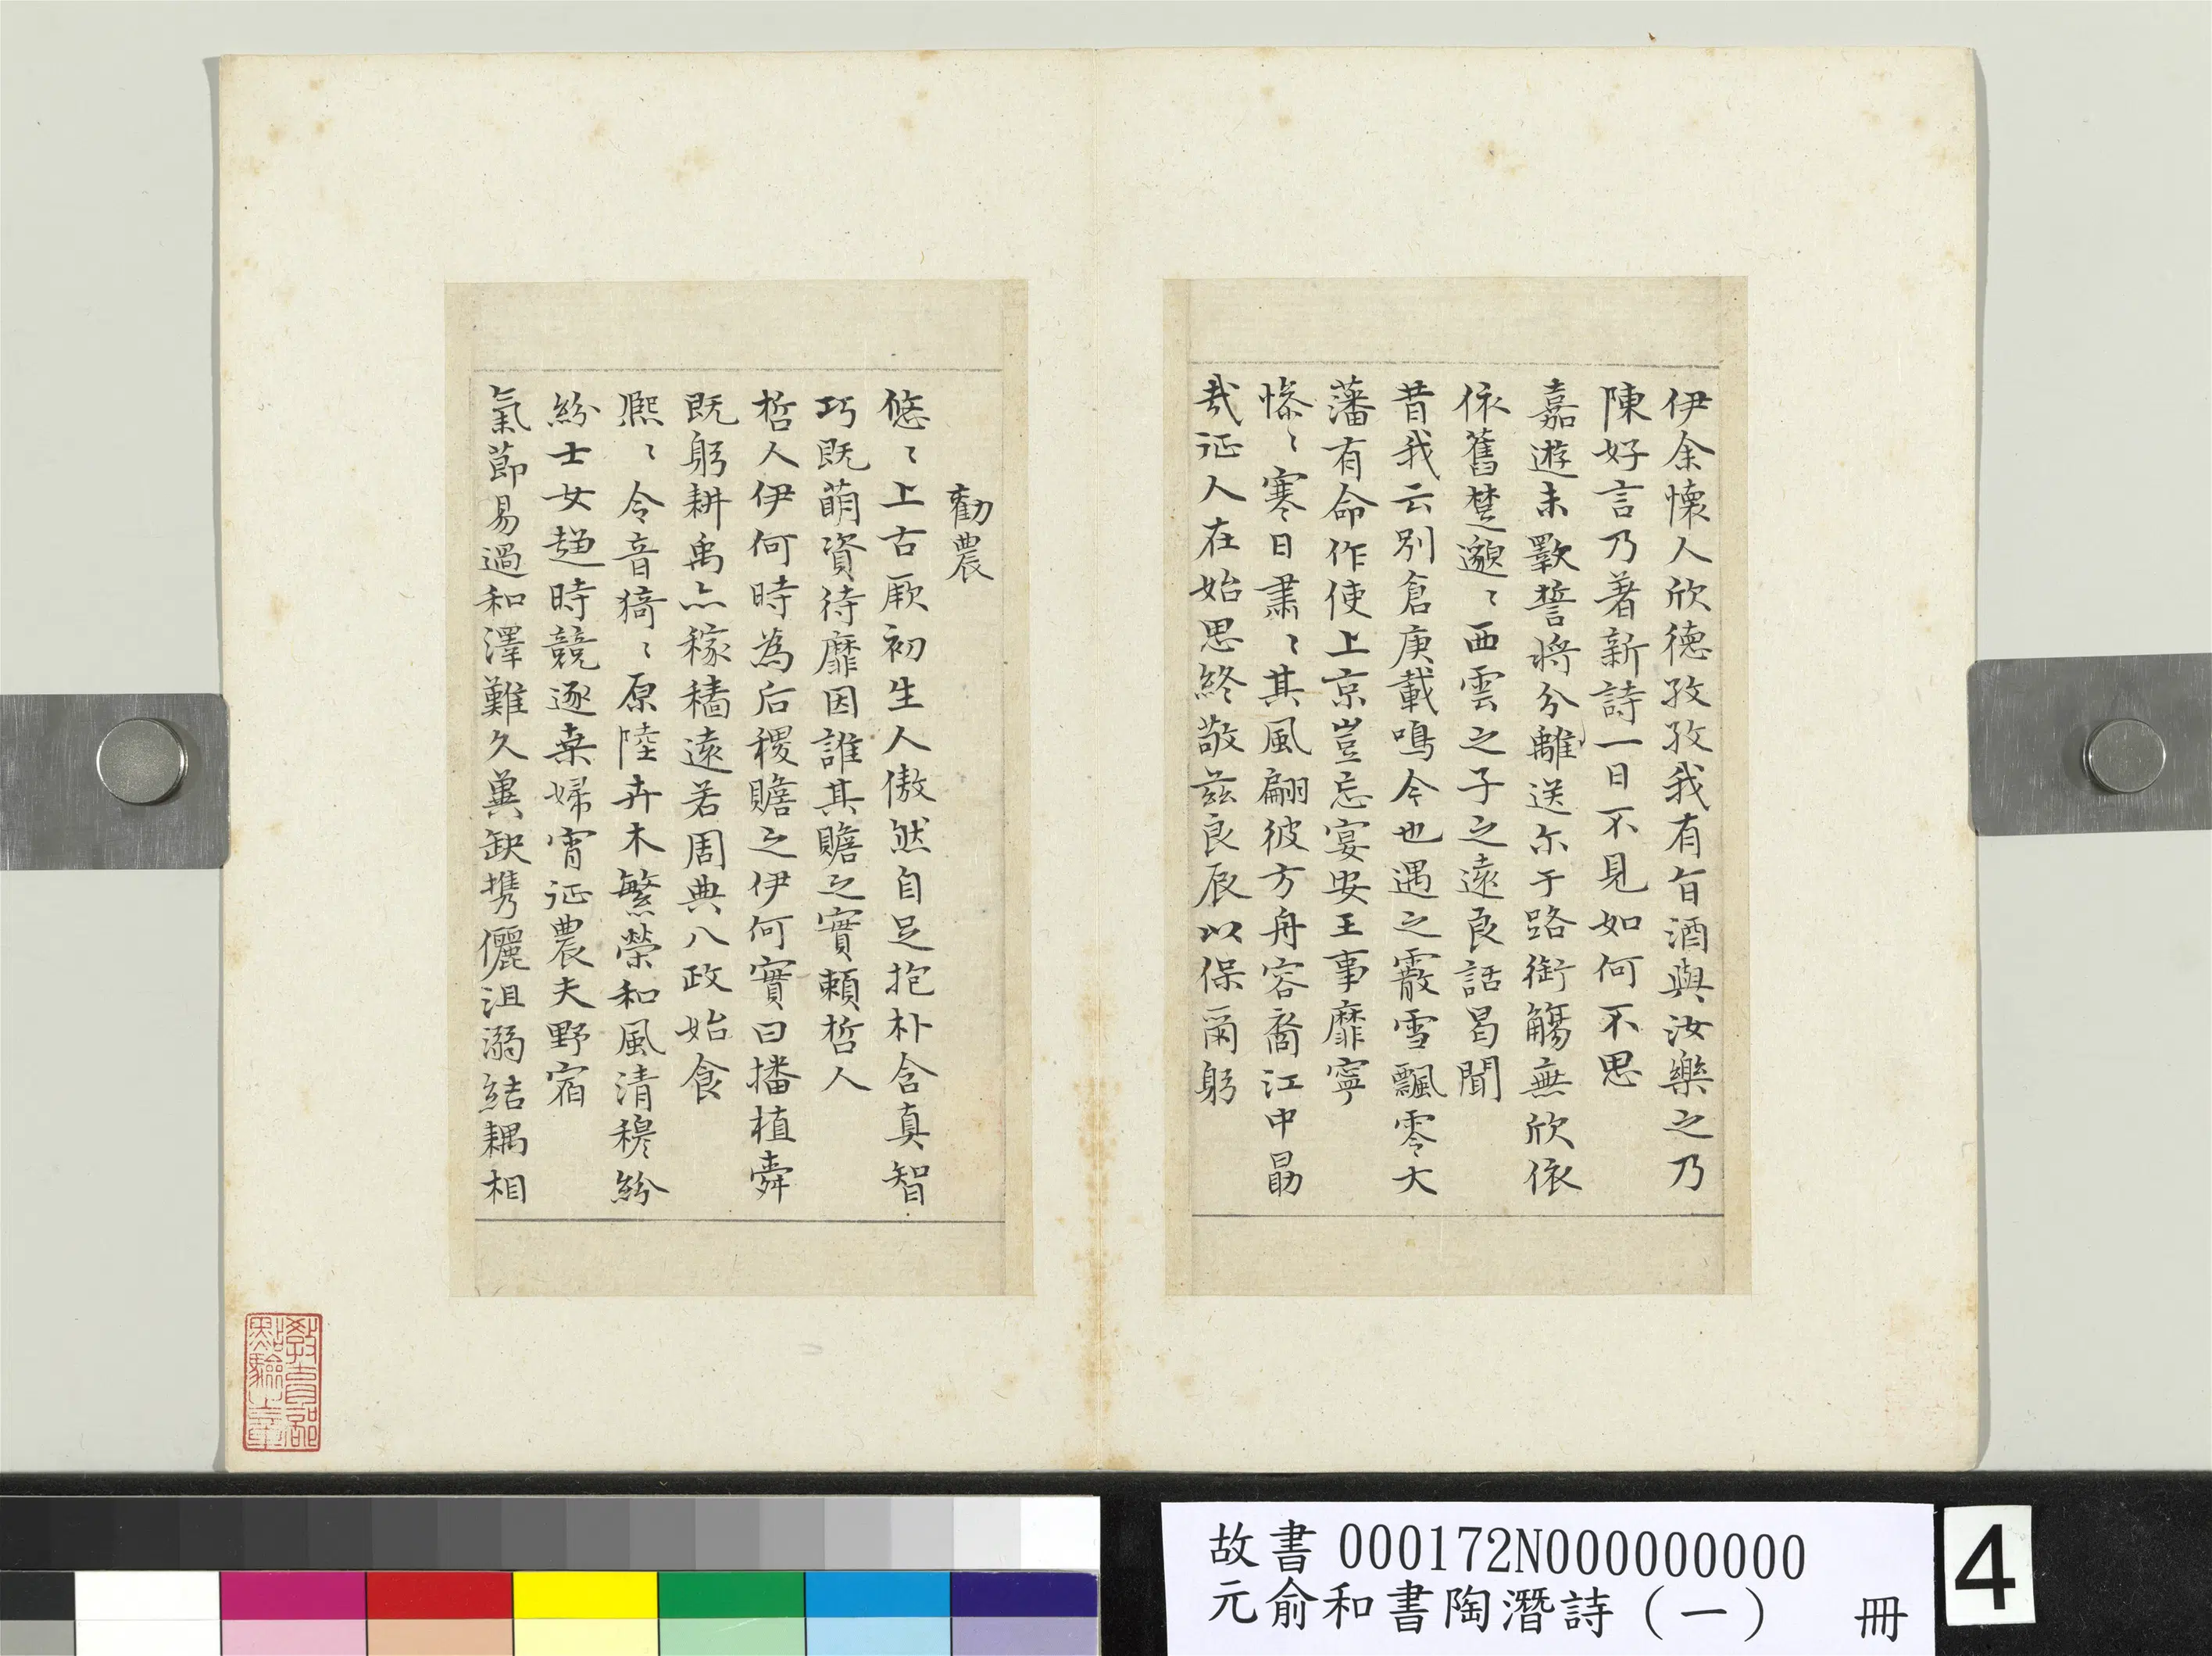 伊余懷人欣德孜孜我有旨酒與汝樂之乃
陳好言乃著新詩一日不見如何不思
嘉遊未斁誓將分離送尒于路銜觴無欣依
依舊楚邈〻西雲之子之遠良話曷聞
昔我云別倉庚載鳴今也遇之霰雪飄零大
藩有命作使上京豈忘宴安王事靡寧
慘〻寒日肅〻其風翩彼方舟容裔江中勗
哉征人在始思終敬茲良辰以保爾躬
勸農
悠〻上古厥初生人傲然自足抱朴含真智
巧既萌資待靡因誰其贍之實賴哲人
哲人伊何時為后稷贍之伊何實曰播植舜
既躬耕禹亦稼穡遠若周典八政始食
熙〻令音猗〻原陸卉木繁榮和風清穆紛
紛士女趨時競逐桑婦宵征農夫野宿
氣節易過和澤難久冀缺攜儷沮溺結耦相
教育部
點驗之章
故書 000172N000000000
元俞和書陶潛詩（一） 冊
4